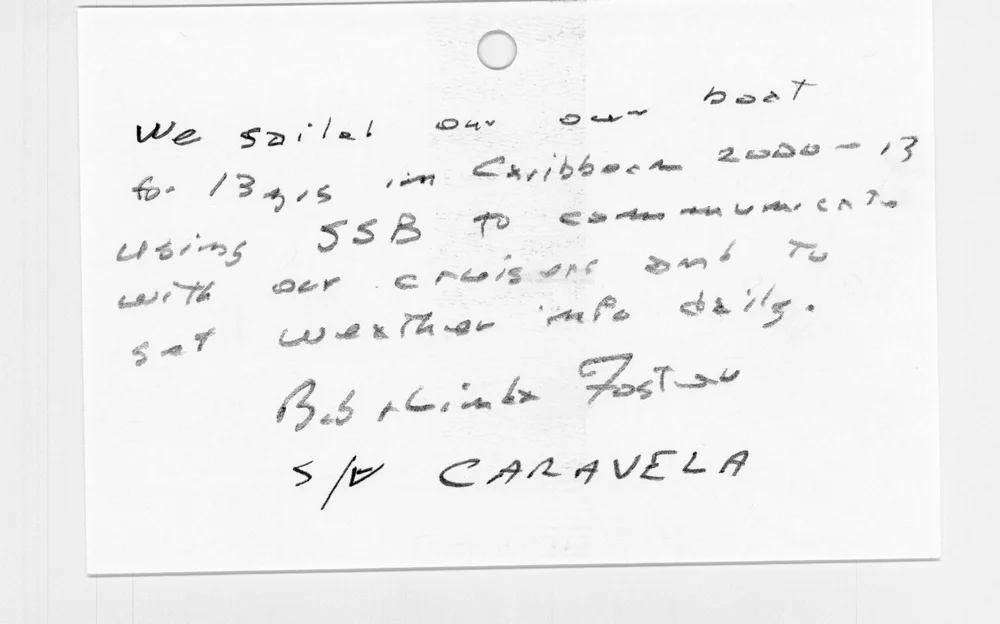 We sailed our our boat
for 13 yrs in Caribbean 2000-13
using SSB to communicate
with our cruisers and to
get weather info daily.
Bob + Linda Foster
S/V CARAVELA